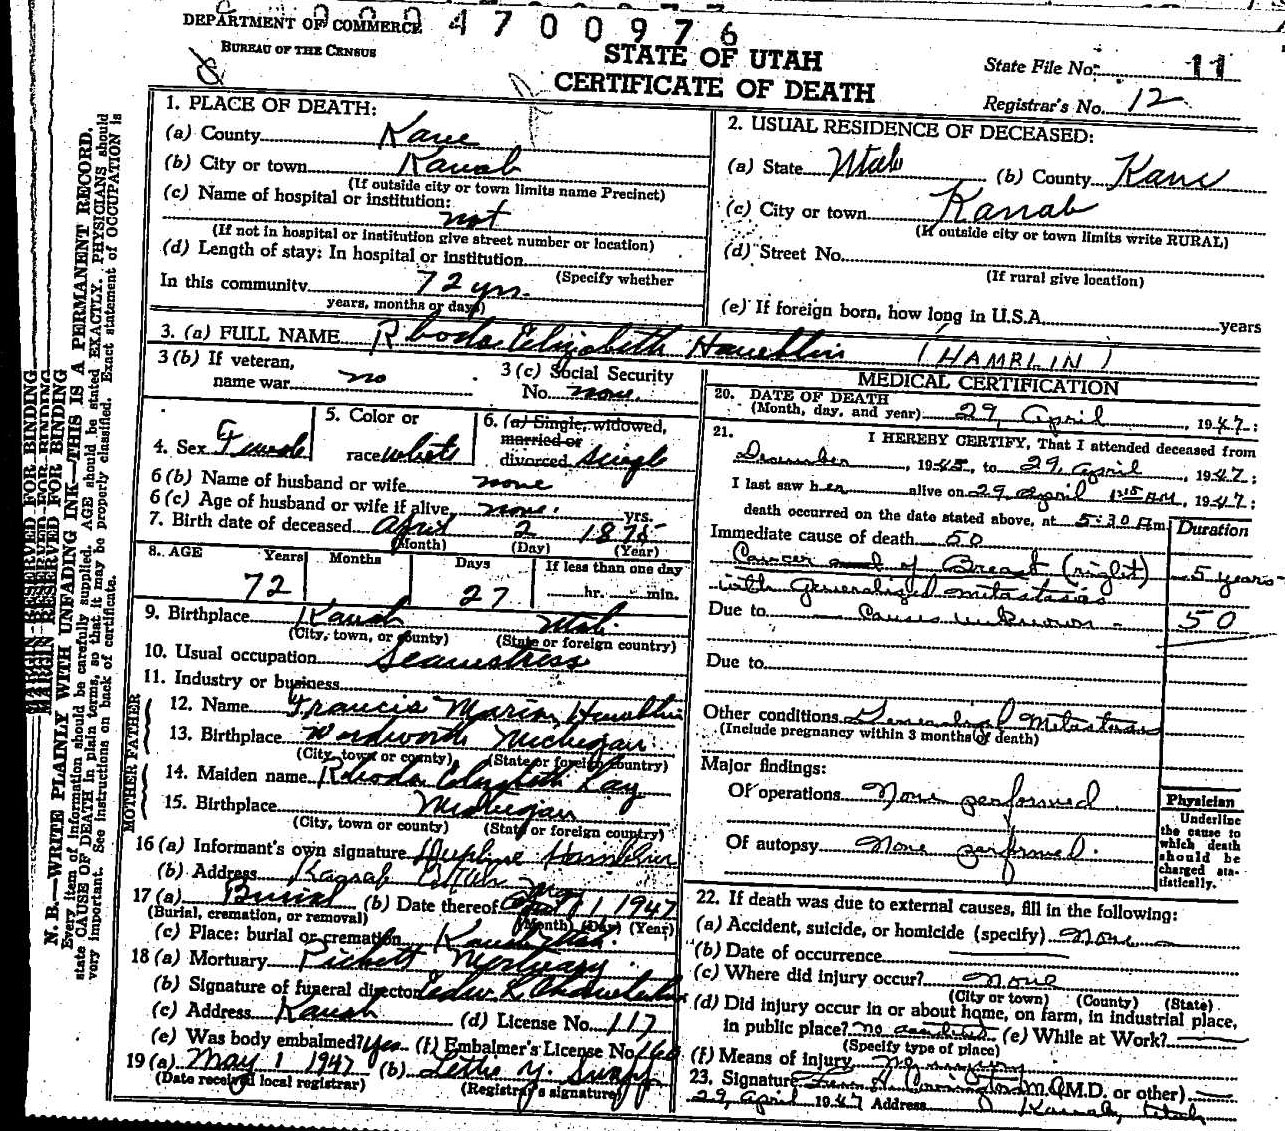 DEPARTMENT OF COMMERCE
4700976
BUREAU OF THE CENSUS
STATE OF UTAH
CERTIFICATE OF DEATH
State File No. 11
Registrar's No. 12
MARGIN RESERVED FOR BINDING
N. B.—WRITE PLAINLY WITH UNFADING INK—THIS IS A PERMANENT RECORD.
Every item of information should be carefully supplied. AGE should be stated EXACTLY. PHYSICIANS should
state CAUSE OF DEATH in plain terms, so that it may be properly classified. Exact statement of OCCUPATION is
very important. See instructions on back of certificate.
1. PLACE OF DEATH:
(a) County Kane
(b) City or town Kanab
(If outside city or town limits name Precinct)
(c) Name of hospital or institution:
not
(If not in hospital or institution give street number or location)
(d) Length of stay: In hospital or institution
(Specify whether
In this community 72 yrs.
years, months or days)
2. USUAL RESIDENCE OF DECEASED:
(a) State Utah (b) County Kane
(c) City or town Kanab
(If outside city or town limits write RURAL)
(d) Street No.
(If rural give location)
(e) If foreign born, how long in U.S.A. years
3. (a) FULL NAME Rhoda Elizabeth Hamblin (HAMBLIN)
3 (b) If veteran,
name war no
3 (c) Social Security
No. none.
4. Sex Female
5. Color or
race white
6. (a) Single, widowed,
married or
divorced single
6 (b) Name of husband or wife none
6 (c) Age of husband or wife if alive none. yrs.
7. Birth date of deceased April 2 1875
(Month) (Day) (Year)
8. AGE Years Months Days If less than one day
72 27 hr. min.
9. Birthplace Kanab Utah.
(City, town, or county) (State or foreign country)
10. Usual occupation Seamstress
11. Industry or business
FATHER
12. Name Francis Marion Hamblin
13. Birthplace Michegan.
(City, town or county) (State or foreign country)
MOTHER
14. Maiden name Rhoda Elizabeth Lay
15. Birthplace Michegan
(City, town or county) (State or foreign country)
16 (a) Informant's own signature Hamblin
(b) Address Kanab Utah
17 (a) Burial (b) Date thereof May 1 1947
(Burial, cremation, or removal) (Month) (Day) (Year)
(c) Place: burial or cremation Kanab Utah.
18 (a) Mortuary Mortuary
(b) Signature of funeral director Chamberlain
(c) Address Kanab (d) License No. 117
(e) Was body embalmed? yes (f) Embalmer's License No. 160
19 (a) May 1 1947 (b)
(Date received local registrar) (Registrar's signature)
MEDICAL CERTIFICATION
20. DATE OF DEATH
(Month, day, and year) 29, April, 1947;
21. I HEREBY CERTIFY, That I attended deceased from
December, 1945, to 29, April, 1947;
I last saw her alive on 29 April 1:15 AM, 1947;
death occurred on the date stated above, at 5:30 Am
Duration
Immediate cause of death 50
Cancer of Breast (right) 5 years
with Generalized metastasis
Due to Causes unknown - 50
Due to
Other conditions Generalized Metastasis
(Include pregnancy within 3 months of death)
Major findings:
Of operations None performed
Of autopsy None performed.
Physician
Underline
the cause to
which death
should be
charged sta-
tistically.
22. If death was due to external causes, fill in the following:
(a) Accident, suicide, or homicide (specify) None
(b) Date of occurrence
(c) Where did injury occur? None
(City or town) (County) (State)
(d) Did injury occur in or about home, on farm, in industrial place,
in public place? No accident (e) While at Work?
(Specify type of place)
(f) Means of injury No injury
23. Signature M.D. (M.D. or other)
29, April 1947 Address Kanab, Utah